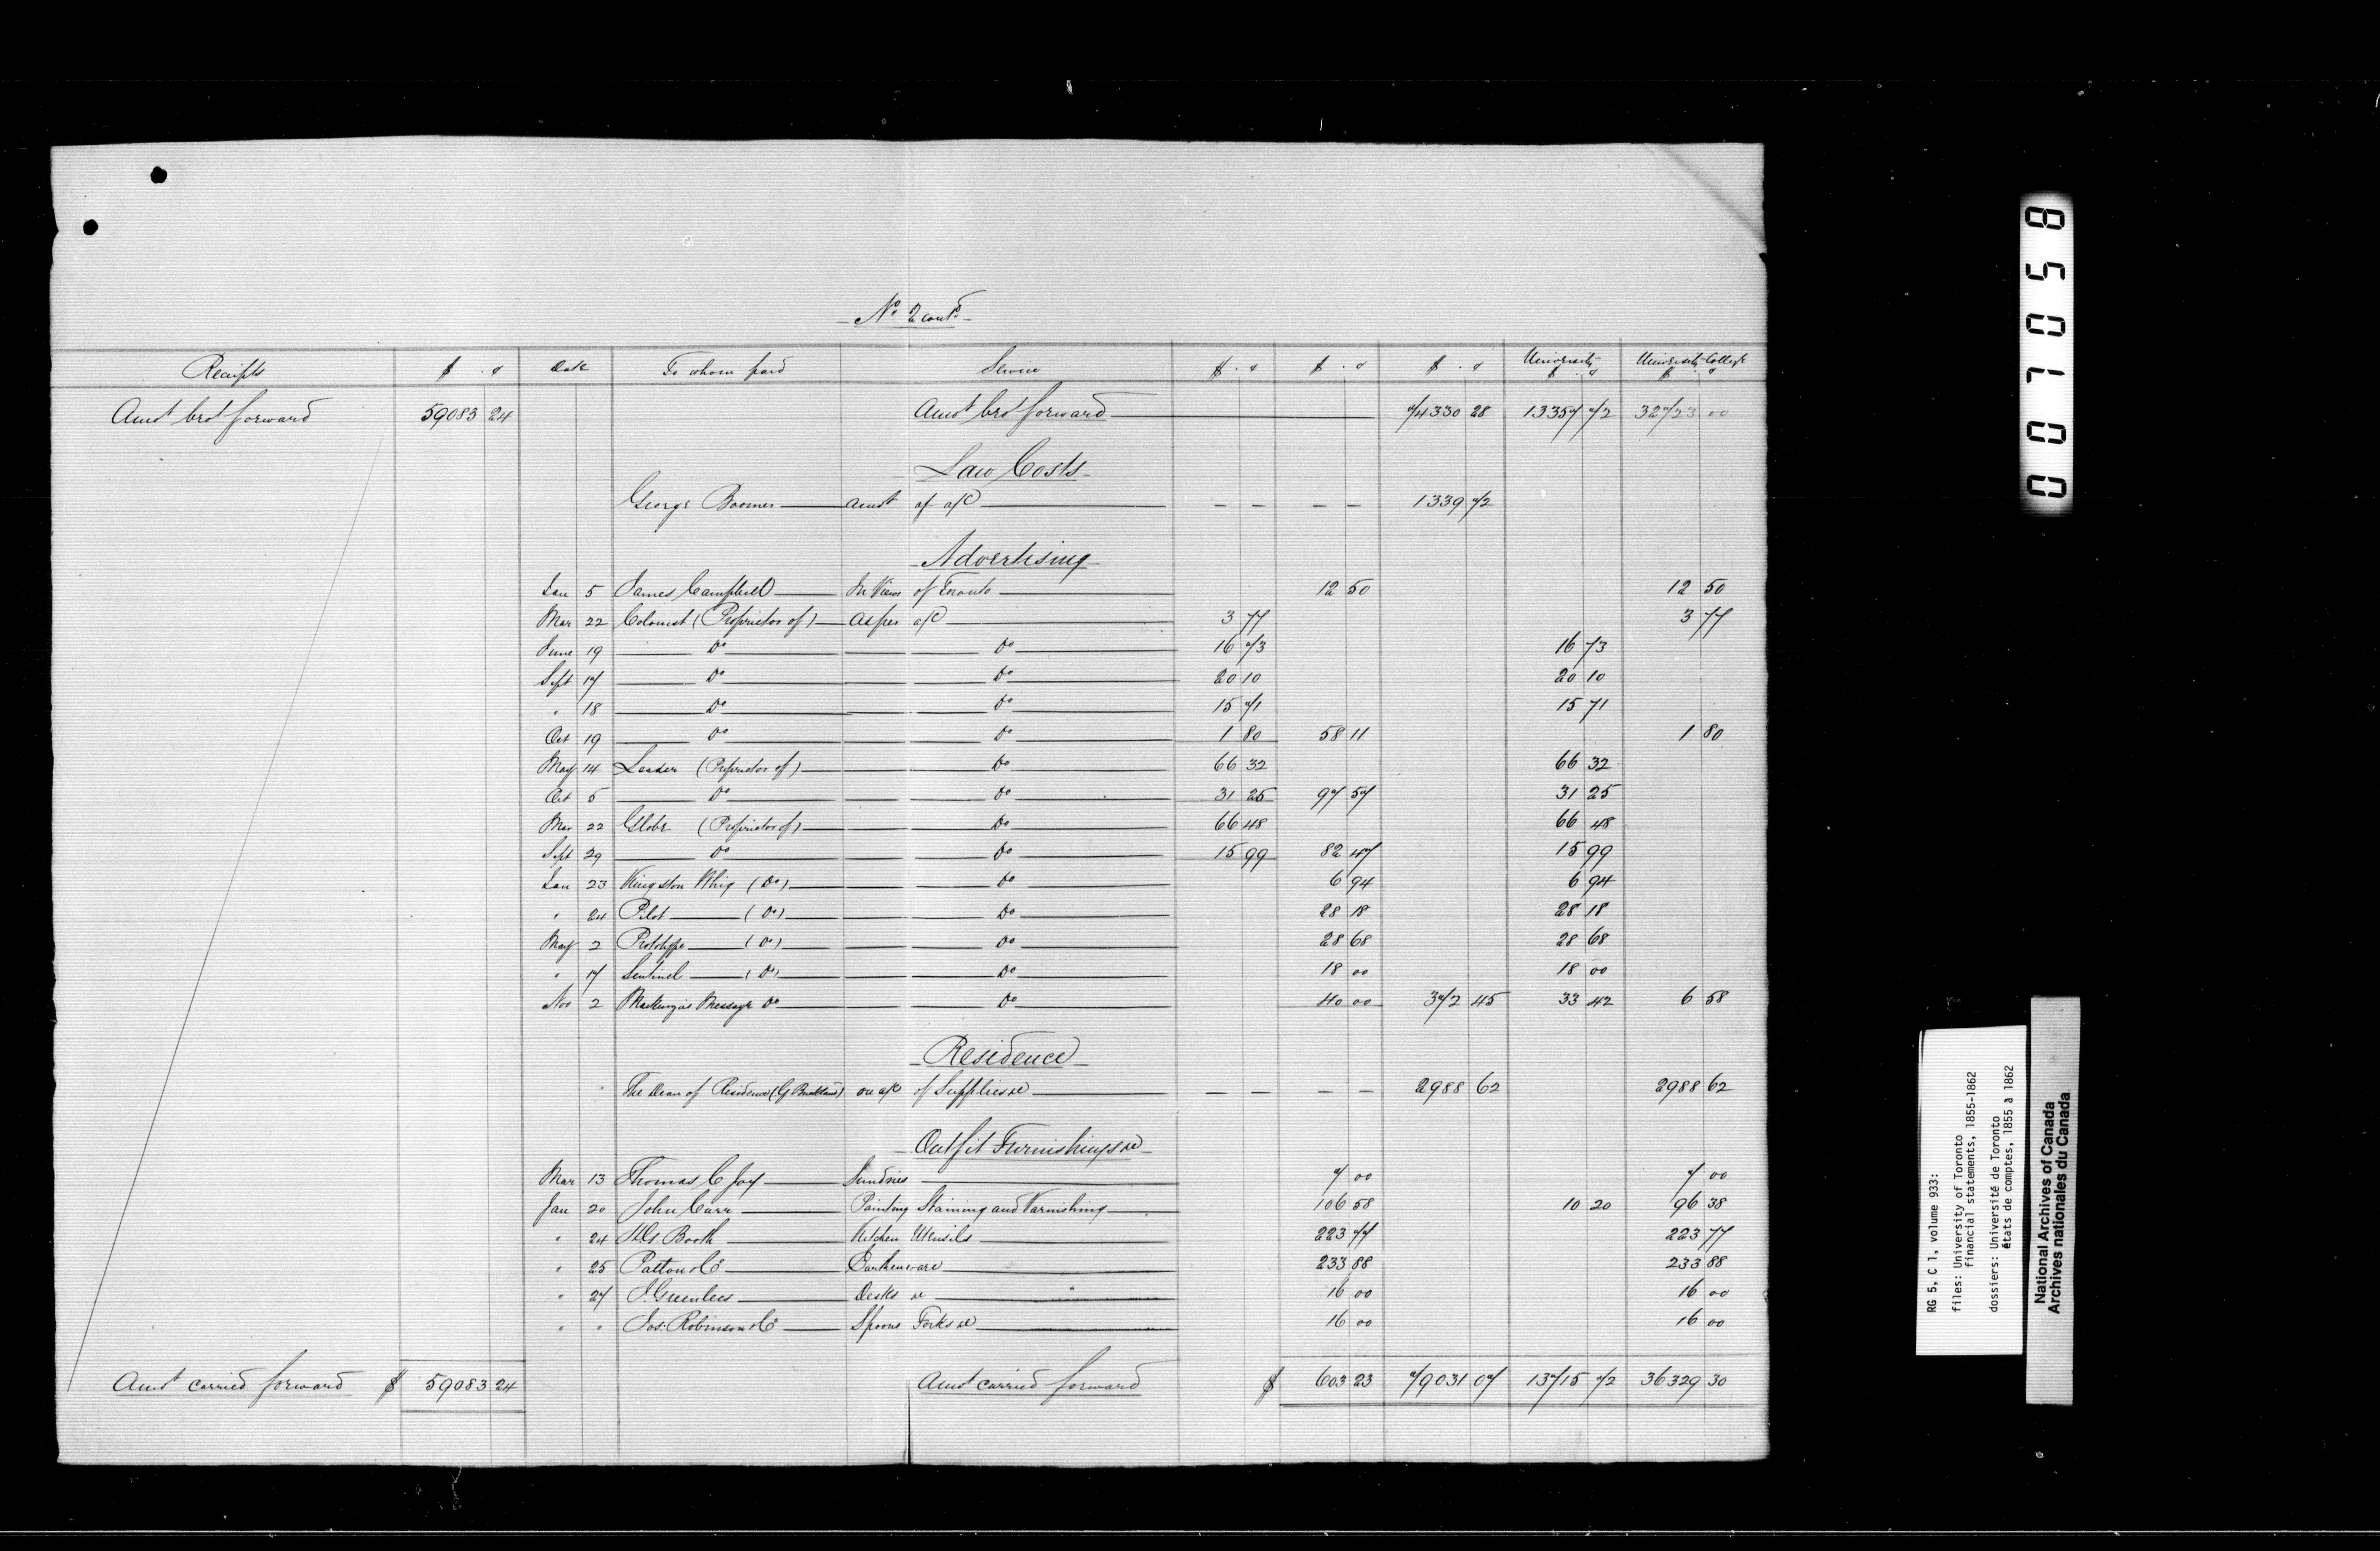 No 2 contd
Receipts $ c Date To whom paid Service $ c $ c $ c University $ c University College $ c
Amt brot forward 59083 24 Amt brot forward 74330 28 13357 72 32723 00
Law Costs
George Boomer amt of a/c — — — — 1339 72
Advertising
Jan 5 James Campbell In Views of Toronto 12 50 12 50
Mar 22 Colonist (Proprietor of) as per a/c 3 77 3 77
June 19 Do Do 16 73 16 73
Sept 17 Do Do 20 10 20 10
" 18 Do Do 15 71 15 71
Oct 19 Do Do 1 80 58 11 1 80
May 14 Leader (Proprietor of) Do 66 32 66 32
Oct 5 Do Do 31 25 97 57 31 25
Mar 22 Globe (Proprietor of) Do 66 48 66 48
Sept 29 Do Do 15 99 82 47 15 99
Jan 23 Kingston Whig (Do) Do 6 94 6 94
" 24 Pilot (Do) Do 28 18 28 18
May 2 Prototype (Do) Do 28 68 28 68
" 17 Sentinel (Do) Do 18 00 18 00
Nov 2 Mackenzies Message Do Do 40 00 372 45 33 42 6 58
Residence
The Dean of Residence (G Buckland) on a/c of Supplies &c — — — — 2988 62 2988 62
Outfit Furnishings &c
Mar 13 Thomas C Joy Sundries 7 00 7 00
Jan 20 John Carr Painting Staining and Varnishing 106 58 10 20 96 38
" 24 Booth Kitchen Utensils 223 77 223 77
" 25 Patton & Co Earthenware 233 88 233 88
" 27 J. Greenlees Desks &c 16 00 16 00
" " Jos. Robinson & Co Spoons Forks &c 16 00 16 00
Amt carried forward $ 59083 24 Amt carried forward $ 603 23 79031 07 13715 72 36329 30
007058
RG 5, C 1, volume 933:
files: University of Toronto
financial statements, 1855-1862
dossiers: Université de Toronto
états de comptes, 1855 à 1862
National Archives of Canada
Archives nationales du Canada